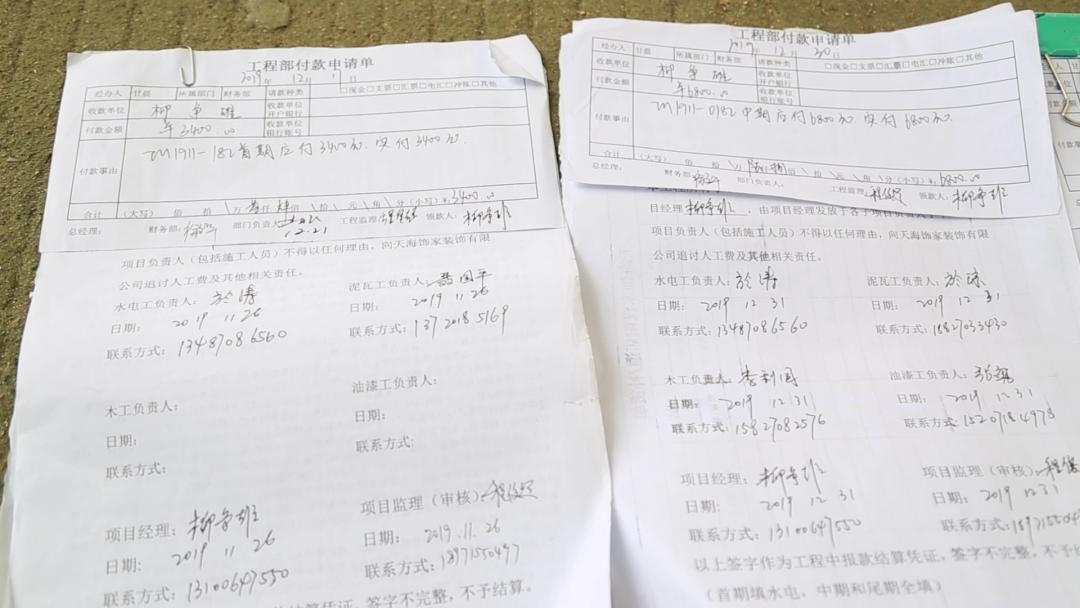 工程部付款申请单
2019年 12月 17日
经办人 甘晨 所属部门 财务部 请款种类 □现金□支票□汇票□电汇□冲账□其他
收款单位 柳争雄 收款单位开户银行
付款金额 ¥3400.00 收款单位银行账号
付款事由 TM1911-182首期应付3400元.实付3400元.
合计 (大写) 佰 拾 万 叁仟 肆佰 拾 元 角 分(小写)¥:3400.00
总经理: 财务部: 部门负责人: 工程监理: 领款人:
12.21
项目负责人(包括施工人员)不得以任何理由,向天海饰家装饰有限
公司追讨人工费及其他相关责任。
水电工负责人:於涛 泥瓦工负责人:
日期: 2019 11.26 日期: 2019 11 26
联系方式:13487086560 联系方式:13720185169
木工负责人: 油漆工负责人:
日期: 日期:
联系方式: 联系方式:
项目经理: 项目监理(审核):
日期: 2019 11 26 日期: 2019.11.26
联系方式:13100647550 联系方式:18971550497
结算凭证,签字不完整,不予结算。
工程部付款申请单
2019年 12月 30日
经办人 甘晨 所属部门 财务部 请款种类 □现金□支票□汇票□电汇□冲账□其他
收款单位 柳争雄 收款单位开户银行
付款金额 ¥6800.00 收款单位银行账号
付款事由 TM1911-0182中期应付6800元.实付6800元.
合计 (大写) 佰 拾 万 陆仟捌佰 拾 元 角 分(小写)¥:6800.00
总经理: 财务部: 部门负责人: 工程监理: 领款人:
目经理 , 由项目经理发放于各子项目负责人
项目负责人(包括施工人员)不得以任何理由,向天海饰家装饰有限
公司追讨人工费及其他相关责任。
水电工负责人:於涛 泥瓦工负责人:
日期: 2019 12 31 日期: 2019 12 31
联系方式:13487086560 联系方式:18827033430
木工负责人: 油漆工负责人:
日期: 2019 12 31 日期: 2019 12.31
联系方式:15827082576 联系方式:15207184978
项目经理: 项目监理(审核):
日期: 2019 12 31 日期: 2019 12.31
联系方式:13100647550 联系方式:
以上签字作为工程中报款结算凭证,签字不完整,不予
(首期填水电,中期和尾期全填)